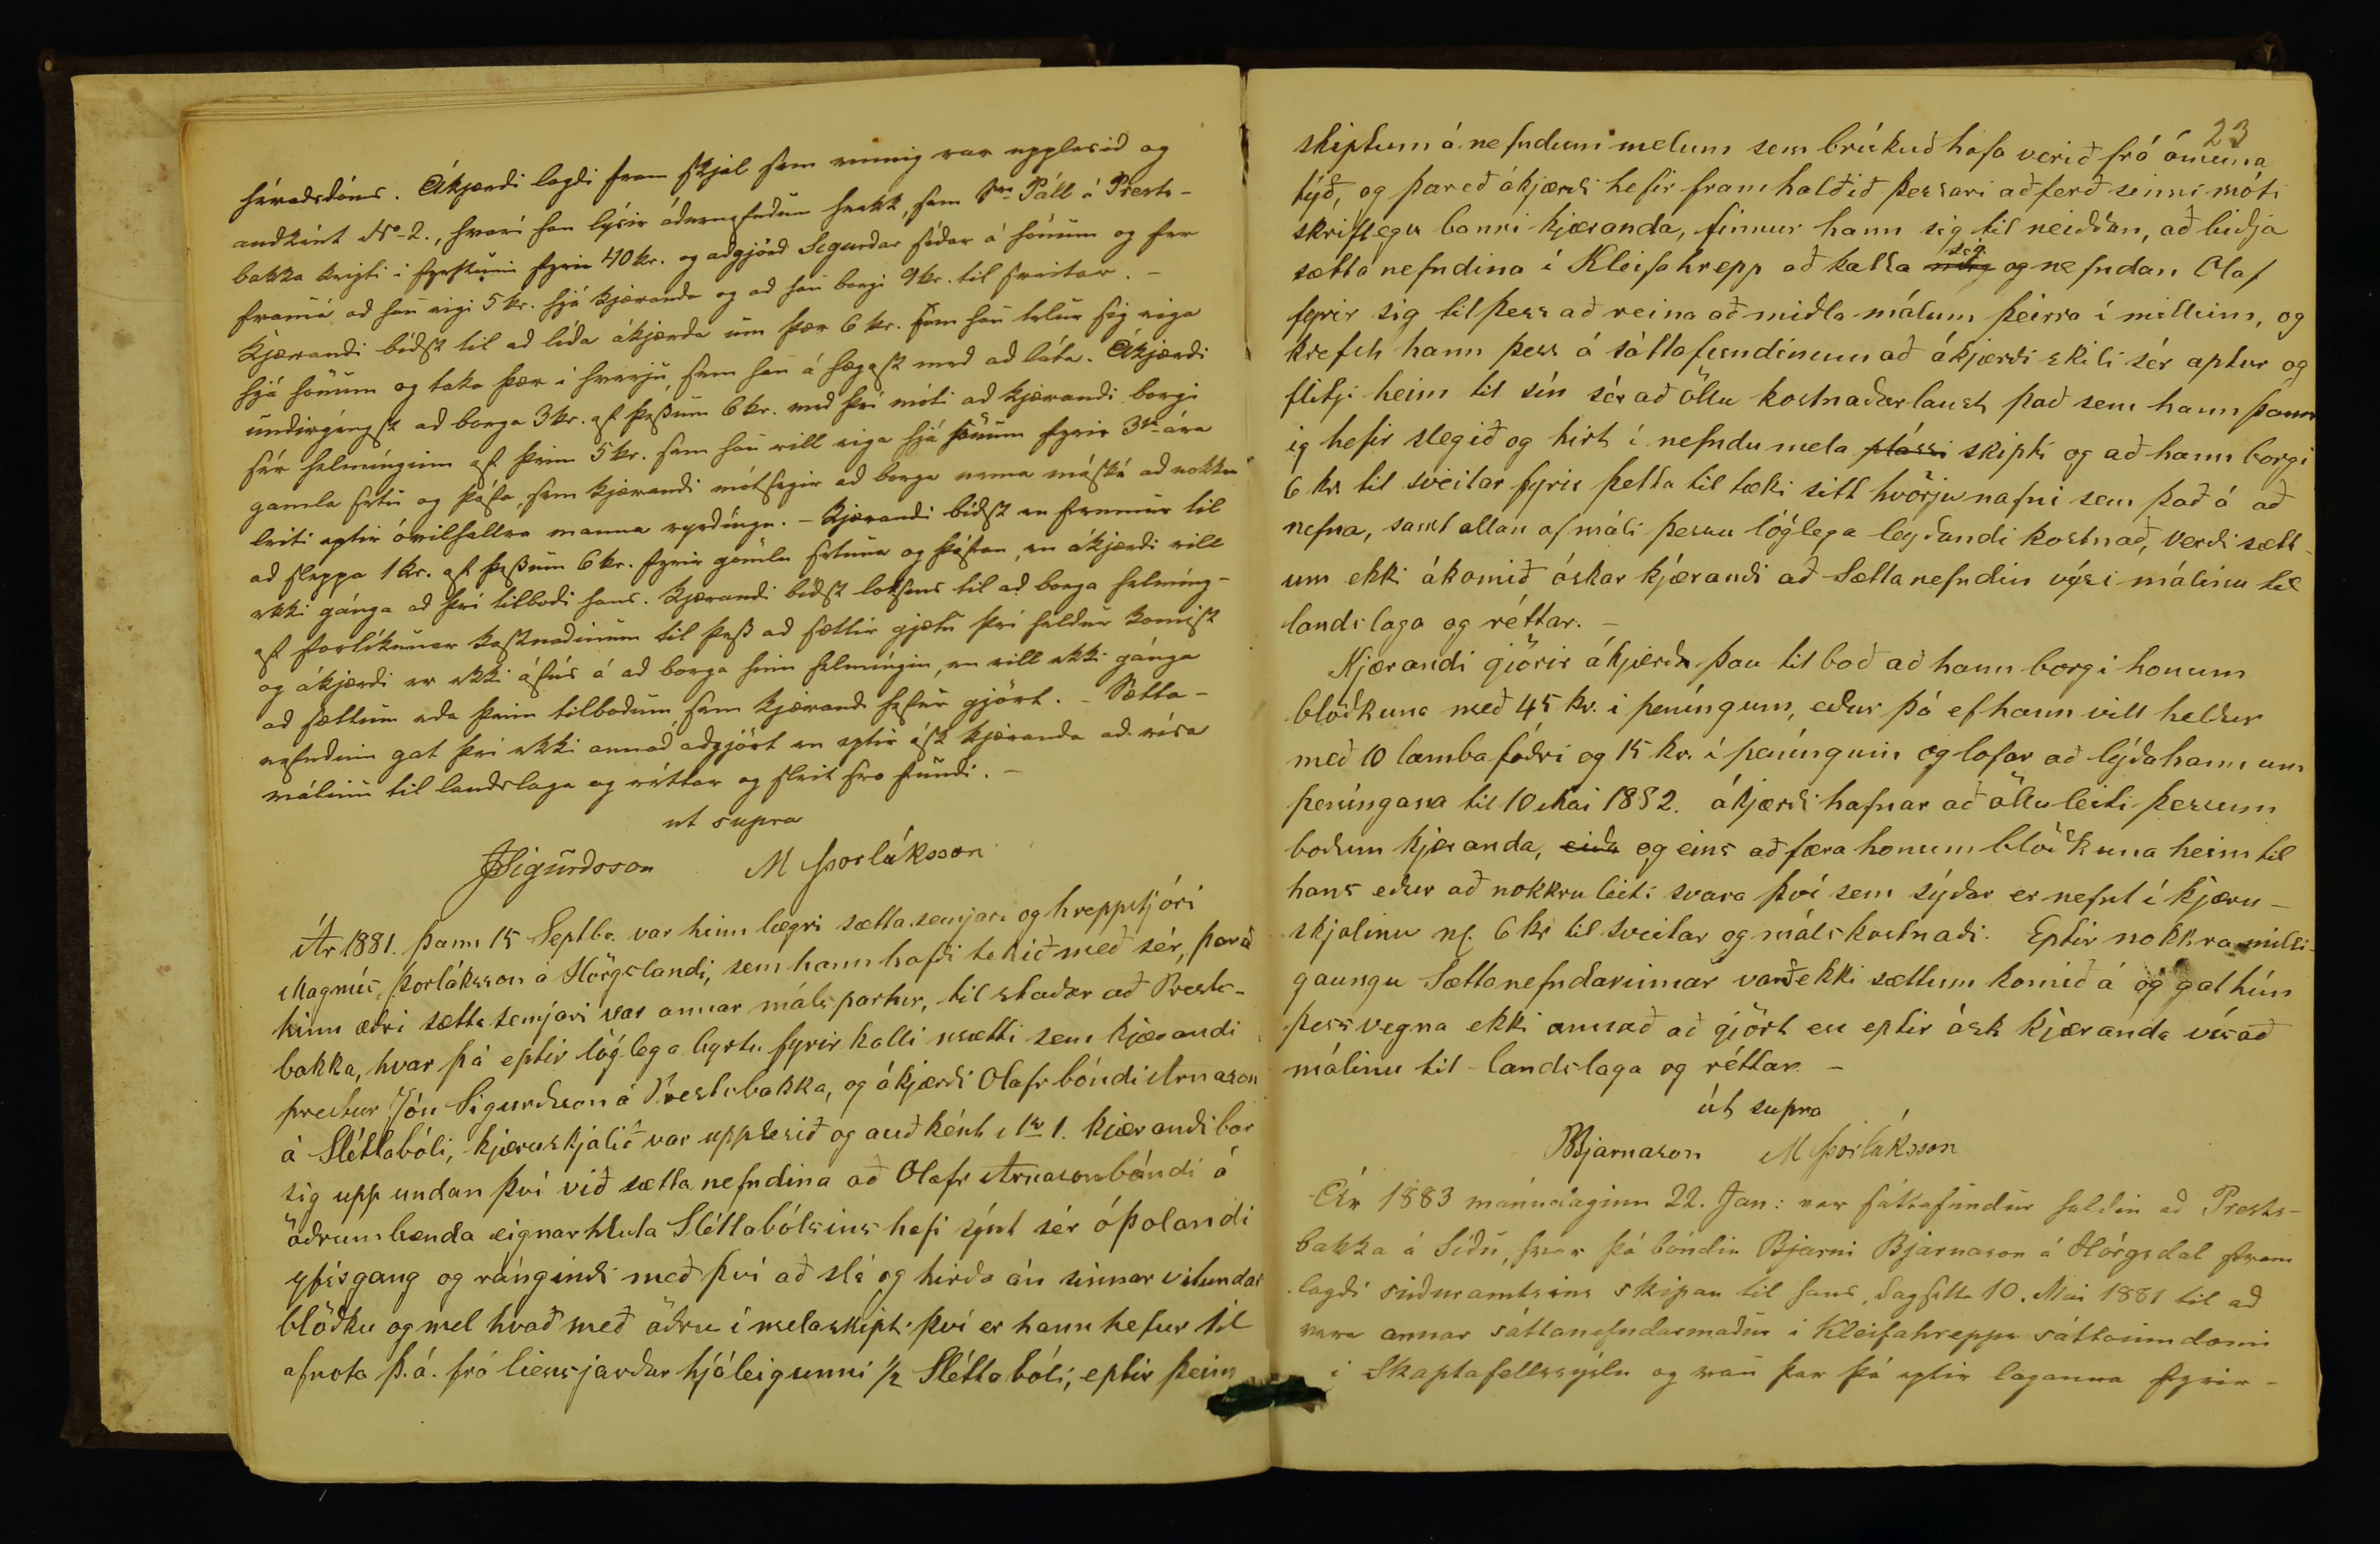 héradsdóms. Ákjærdi lagdi fram skjal sem einnig var upplesid og
audként No 2., hvarí han lýsir ádurnefndum hnakk, sem Sra Páll á Prests-
bakka keypti i fyrstunni fyrir 40 kr. og adgjörd Sigurdar södar á hönum og fer
framá ad han eigi 5 kr. hjá kjæranda og ad han borgi 9 kr. til sveitar. -
Kjærandi bidst til ad lída ákjærda um þær 6 kr. sem han telur sig eiga
hjá hönum og taka þær i hverju, sem han á hægast med ad láta. Ákjærdi
undirgengst ad borga 3 kr. af þessum 6 kr. med því móti ad kjærandi borgi
sér helmínginn af þeim 5 kr. sem han vill eiga hjá hönum fyrir 3ja ára
gamla and þófa, sem kjærandi mótsegir ad borga nema máské ad nokkru
leiti eptir óvilhallra manna virdíngu. - Kjærandi bidst en fremur til
ad sleppa 1 kr. af þessum 6 kr. fyrir gömlu and þófan, en ákjærdi vill
ekki gánga ad því tilbodi hans. Kjærandi bidst loksins til ad borga helmíng-
af forlikunar kostnadinum til þess ad sættir gjætu því heldur komist
og ákjærdi er ekki ófús á ad borga hinn helmíngin, en vill ekki gánga
ad sættum eda þeim tilbodum, sem kjærandi hefur gjört. - Sætta-
nefndin gat því ekki annad adgjört en eptir ósk kjæranda ad vísa
málinu til landslaga og réttar og sleit svo fundi. -
ut supra
JSigurdsson M Þorláksson
Ár 1881. þann 15 Septbr. var hinn lægri sættasemjari og hreppstjóri
Magnús Þorláksson á Hörgslandi, sem hann hafdi tekið með sér, þar að
hinn ædri sættasemjari var annar málspartur, til staðar að Prests-
bakka, hvar þá eptir löglega byrtu fyrirkalli mætti sem kjærandi
prestur Jón Sigurdsson á Prestsbakka, og ákjærði Olafr bóndi Arnason
á Sléttabóli, kjæruskjalið var upplesið og auðként Nr 1. kjærandi bar
sig upp undan því við sættanefndina að Olafr Arnason bóndi á
öðrum bænda eignarhluta Sléttabólsins hafi sýnt sér óþolandi
yfirgang og rángindi með því að slá og hirða án sinnar vitundar
blöðku og mel hvað með öðru í melaskipti því er hann hefur til
afnota þ. á. frá liensjarðar hjáleigunni 1/2 Sléttabóli, eptir þeim
23
skiptum á nefndum melum sem brúkuð hafa verið frá ómuna
týð, og þareð ákjærði hefir framhaldið þessari aðferð sinni móti
skriflegu banni kjæranda, finnur hann sig til neiddan, að biðja
sættanefndina í Kleifahrepp að kalla sig og nefndan Olaf
fyrir sig til þess að reina að miðla málum þeirra í millum, og
krefst hann þess á sáttafundinum að ákjærði skili sér aptur og
flitji heim til sín sér að öllu kostnaðarlaust það sem hann þann
ig hefir slegið og hirt í nefndu mela plássi skipti og að hann borgi
6 kr. til sveitar fyrir þetta tiltæki sitt hvörju nafni sem það á að
nefna, samt allan af máli þessu löglega leyðandi kostnað, verði sætt-
um ekki ákomið óskar kjærandi að Sættanefndin výsi málinu til
landslaga og réttar. -
Kjærandi gjörir ákjærða þau tilboð að hann borgi honum
blöðkuna með 45 kr. i peníngum, eður þá ef hann vill heldur
með 10 lambafóðri og 15 kr. í peníngum og lofar að lýða hann um
peníngana til 10 Mai 1882. ákjærði hafnar að öllu leiti þessum
boðum kjæranda, og eins að færa honum blöðkuna heim til
hans eður að nokkru leiti svara því sem sýðar er nefnt í kjæru-
skjalinu nf. 6 kr til sveitar og málskostnaði. Eptir nokkra milli-
gaungu Sættanefndarinnar varð ekki sættum komið á og gat hún
þess vegna ekki annað að gjört en eptir ósk kjæranda vísað
málinu til landslaga og réttar -
út supra
BBjarnason M Þorláksson
Ár 1883 mánudaginn 22. Jan: var sáttafundur haldin að Prests-
bakka á Síðu, hvar þá bóndin Bjarni Bjarnason á Hörgsdal fram
lagði suðuramtsins skipan til hans, dagsetta 10. Mai 1881 til að
vera annar sáttanefndarmaður i Kleifahrepps sáttaumdæmi
i Skaptafellssýslu og vau þar þá eptir laganna fyrir-